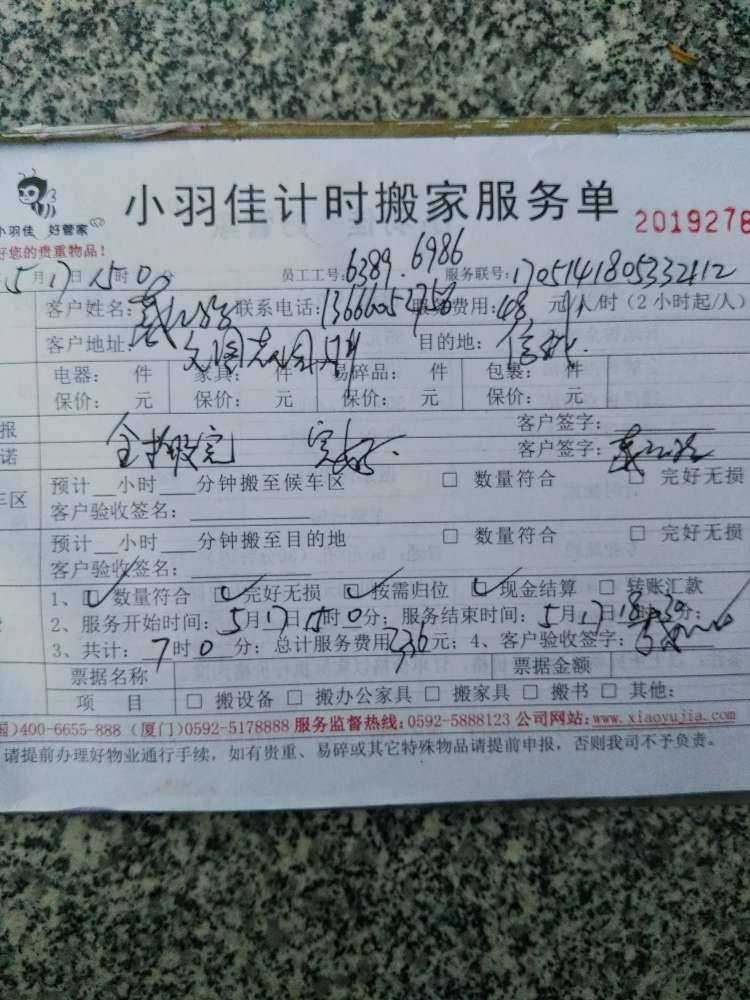 小羽佳计时搬家服务单
2019276
小羽佳 好管家
好您的贵重物品！
5月17日15时0分 员工工号：6389.6986 服务联号：1705141805332412
客户姓名： 联系电话： 服务费用：48元/人/时（2小时起/人）
客户地址： 目的地：
电器： 件 家具： 件 易碎品： 件 包裹： 件
保价： 元 保价： 元 保价： 元 保价： 元
报 客户签字：
诺 完好. 客户签字：
车区 预计__小时___分钟搬至候车区 □ 数量符合 □ 完好无损
客户验收签名：
预计__小时___分钟搬至目的地 □ 数量符合 □ 完好无损
客户验收签名：
1、☑数量符合 ☑完好无损 ☑按需归位 ☑现金结算 □ 转账汇款
2、服务开始时间：5月17日15时0分；服务结束时间：5月17日18时30分；
3、共计：7时0分；总计服务费用336元；4、客户验收签字：
票据名称 票据金额
项 目 □ 搬设备 □ 搬办公家具 □ 搬家具 □ 搬书 □ 其他：
国)400-6655-888 (厦门)0592-5178888 服务监督热线：0592-5888123 公司网站：www.xiaoyujia.com
请提前办理好物业通行手续，如有贵重、易碎或其它特殊物品请提前申报，否则我司不予负责。